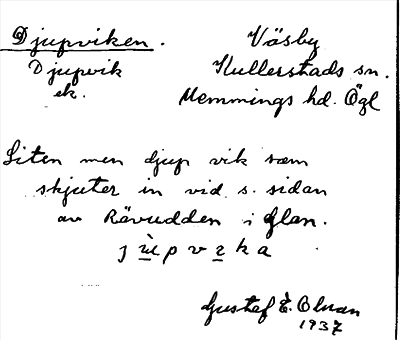 Djupviken. Väsby
Djupvik Kullerstads sn.
ek. Memmings hd. Ögl
Liten men djup vik som
skjuter in vid s. sidan
av Rävudden i Glan.
j ùpv ka
Gustaf E. Olman
1937